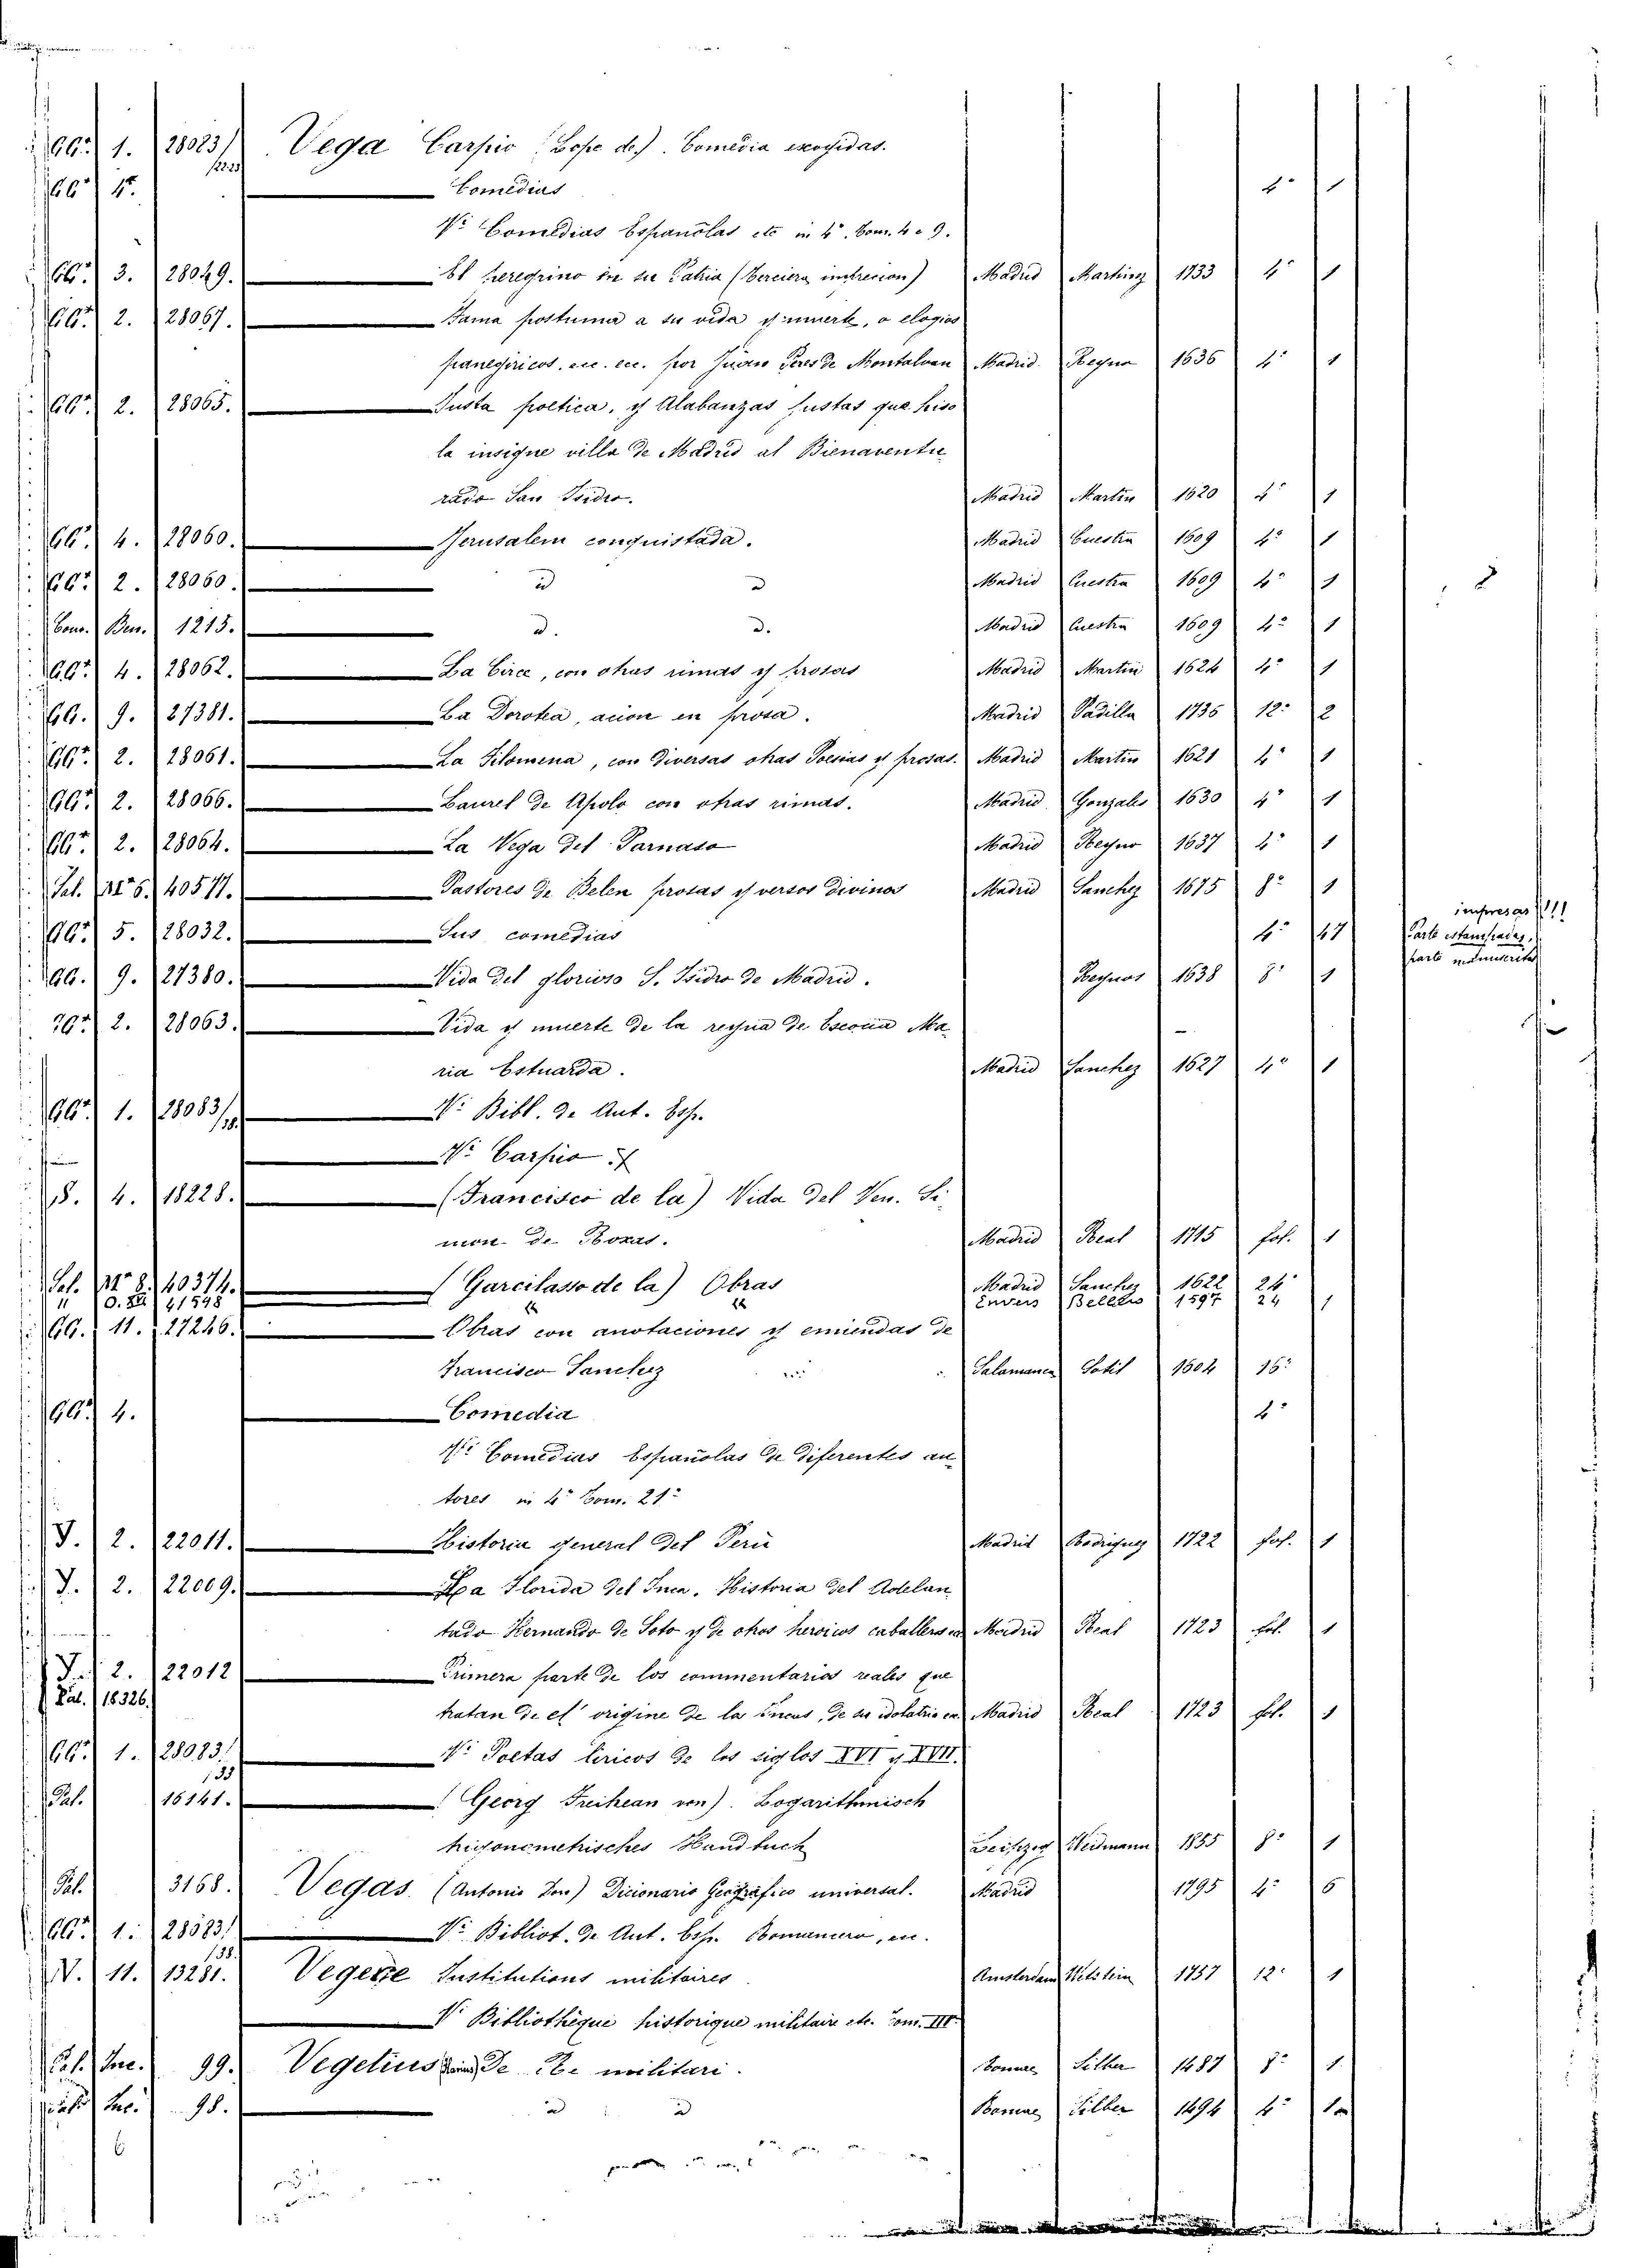 GG.r 1. 28083/ Vega Carpio (Lope de). Comedia escogidas.
GG.r 4. Comedias 4.o 1
V.i Comedias Españolas etc in 4.o Tom. 4 e 9.
GG.r 3. 28049. El peregrino in su Patria (Terciera imprecion) Madrid Martinez 1733 4.o 1
GG.r 2. 28067. Fama postuma a su vida y muerte, o elogios
panegiricos, ecc. ecc. por Juan Peres de Montalvan Madrid Reyno 1636 4.o 1
GG.r 2. 28065. Justa poetica, y Alabanzas justas que hiso
la insigne villa de Madrid al Bienaventu
rado San Isidro. Madrid Martin 1620 4.o 1
GG.r 4. 28060. Jerusalem conquistada. Madrid Cuestra 1609 4.o 1
GG.r 2. 28060. id d Madrid Cuestra 1609 4.o 1
Cons. Ben. 1215. d. d. Madrid Cuestra 1609 4.o 1
GG.r 4. 28062. La Circe, con otras rimas y prosas Madrid Martin 1624 4.o 1
GG. 9. 27381. La Dorotea, acion en prosa. Madrid Padilla 1736 12.o 2
GG.r 2. 28061. La Filomena, con diversas otras Poesias y prosas. Madrid Martin 1621 4.o 1
GG.r 2. 28066. Laurel de Apolo con otras rimas. Madrid Gonzales 1630 4.o 1
GG.r 2. 28064. La Vega del Parnaso Madrid Reyno 1637 4.o 1
Pal. 40577. Pastores de Belen prosas y versos divinos Madrid Sanchez 1675 8.o 1
GG.r 5. 28032. Sus comedias 4.o 47 impresas !!!!
Parte estampadas,
parte manuscritas
GG. 9. 27380. Vida del glorioso S. Isidro de Madrid. Reynos 1638 8.o 1
GG.r 2. 28063. Vida y muerte de la reyna de Escocia Ma
ria Estuarda. Madrid Sanchez 1627 4.o 1
GG.r 1. 28083/ V.i Bibl. de Aut. Esp.
V.i Carpio
S. 4. 18228. (Francisco de la) Vida del Ven. Si
mon de Roxas. Madrid Real 1715 fol. 1
Pal. 40374. (Garcilasso de la) Obras Madrid Sanchez 1622 24.o
41598 Envers Bellero 1597 24 1
GG. 11. 27246. Obras con anotaciones y emiendas de
Francisco Sanchez Salamanca 1604 16.o
GG.r 4. Comedia 4.o
V.i Comedias Españolas de diferentes au
tores in 4.o Tom. 21.o
J. 2. 22011. Historia general del Perù Madrid Rodriguez 1722 fol. 1
J. 2. 22009. La Florida del Inca. Historia del Adelan
tado Hernando de Soto y de otros heroicos caballeros ec Madrid Real 1723 fol. 1
J. 2. 22012 Primera parte de los commentarios reales que
Pal. 18326. tratan de el origine de los Incas, de su idolatria ec. Madrid Real 1723 fol. 1
GG.r 1. 28083/ V.i Poetas liricos de los siglos XVI y XVII.
Pal. 16141. (Georg Freihean von). Logarithmisch
trigonometrisches Handbuch Leipzig Weidmann 1855 8.o 1
Pal. 3168. Vegas (Antonio Don) Dicionario Geografico universal. Madrid 1795 4.o 6
GG.r 1. 28083/ V.i Bibliot. de Aut. Esp. Romancero, ec.
138.
V. 11. 13281. Vegece Institutions militaires Amsterdam Wetstein 1757 12.o 1
V. Bibliothèque historique militaire etc. Tom. III.
Pal. Inc. 99. Vegetius De Re militari. Romae Silber 1487 8.o 1
Inc. 98. id d Romae Silber 1494 4.o 1
6